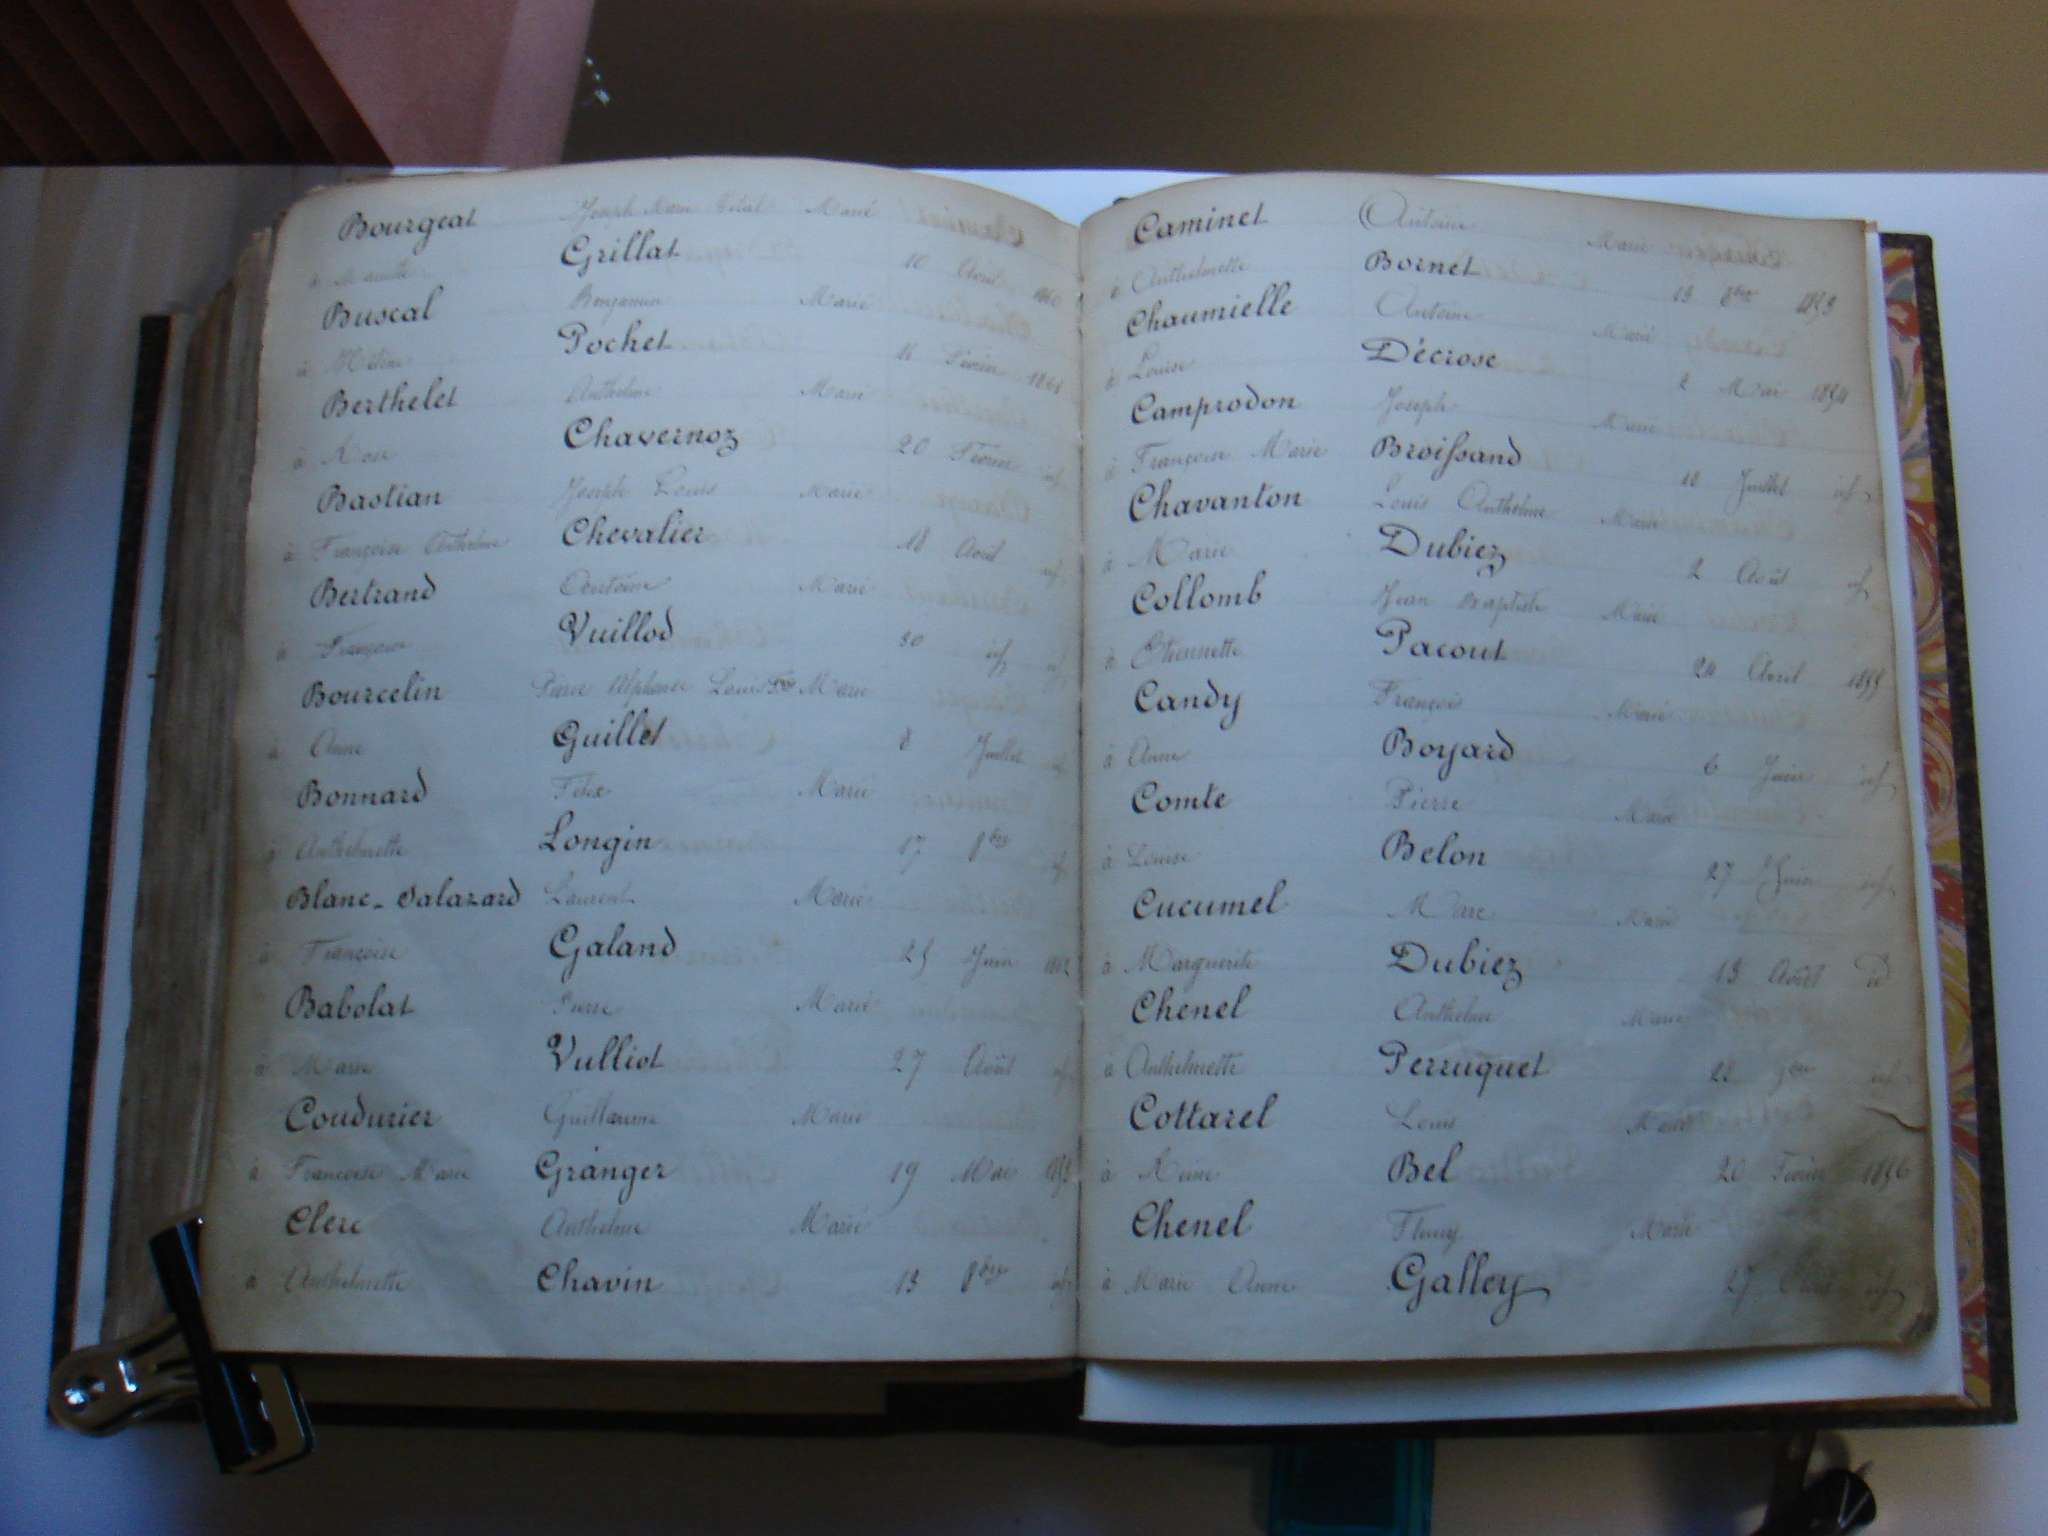 Bourgeat Joseph Marie Vital Marié
à Grillat 10 Août 1860
Buscal Benjamin Marié
à Pochet Février 1861
Berthelet Anthelme Marié
à Chavernoz 20 Février id
Bastian Joseph Louis Marié
à Françoise Anthelme Chevalier 18 Août id
Bertrand Antoine Marié
à Françoise Vuillod 30 id id
Bourcelin Pierre Alphonse Louis Marié
à Anne Guillet 8 Juillet id
Bonnard Félix Marié
à Anthelmette Longin 17 8bre id
Blanc-Salazard Laurent Marié
à Françoise Galand 25 Juin 1862
Babolat Pierre Marié
à Marie Vulliot 27 Août id
Coudurier Guillaume Marié
à Françoise Marie Granger 19 Mai
Clerc Anthelme Marié
à Anthelmette Chavin 13 8bre id
Caminet Antoine Marié
à Anthelmette Bornet 13 8bre 1853
Chaumielle Antoine Marié
à Louise Décrose 2 Mai 1854
Camprodon Joseph Marié
à Françoise Marie Broissand 18 Juillet id
Chavanton Louis Anthelme Marié
à Marie Dubiez 2 Août id
Collomb Jean Baptiste Marié
à Etiennette Pacout 24 Avril 1855
Candy François Marié
à Anne Boyard 6 Juin id
Comte Pierre Marié
à Louise Belon 27 Juin id
Cucumel Marc Marié
à Marguerite Dubiez 13 Août id
Chenel Anthelme Marié
à Anthelmette Perruquet 28 9bre id
Cottarel Louis Marié
à Reine Bel 20 Février 1856
Chenel Fleury Marié
à Marie Anne Galley 27 id